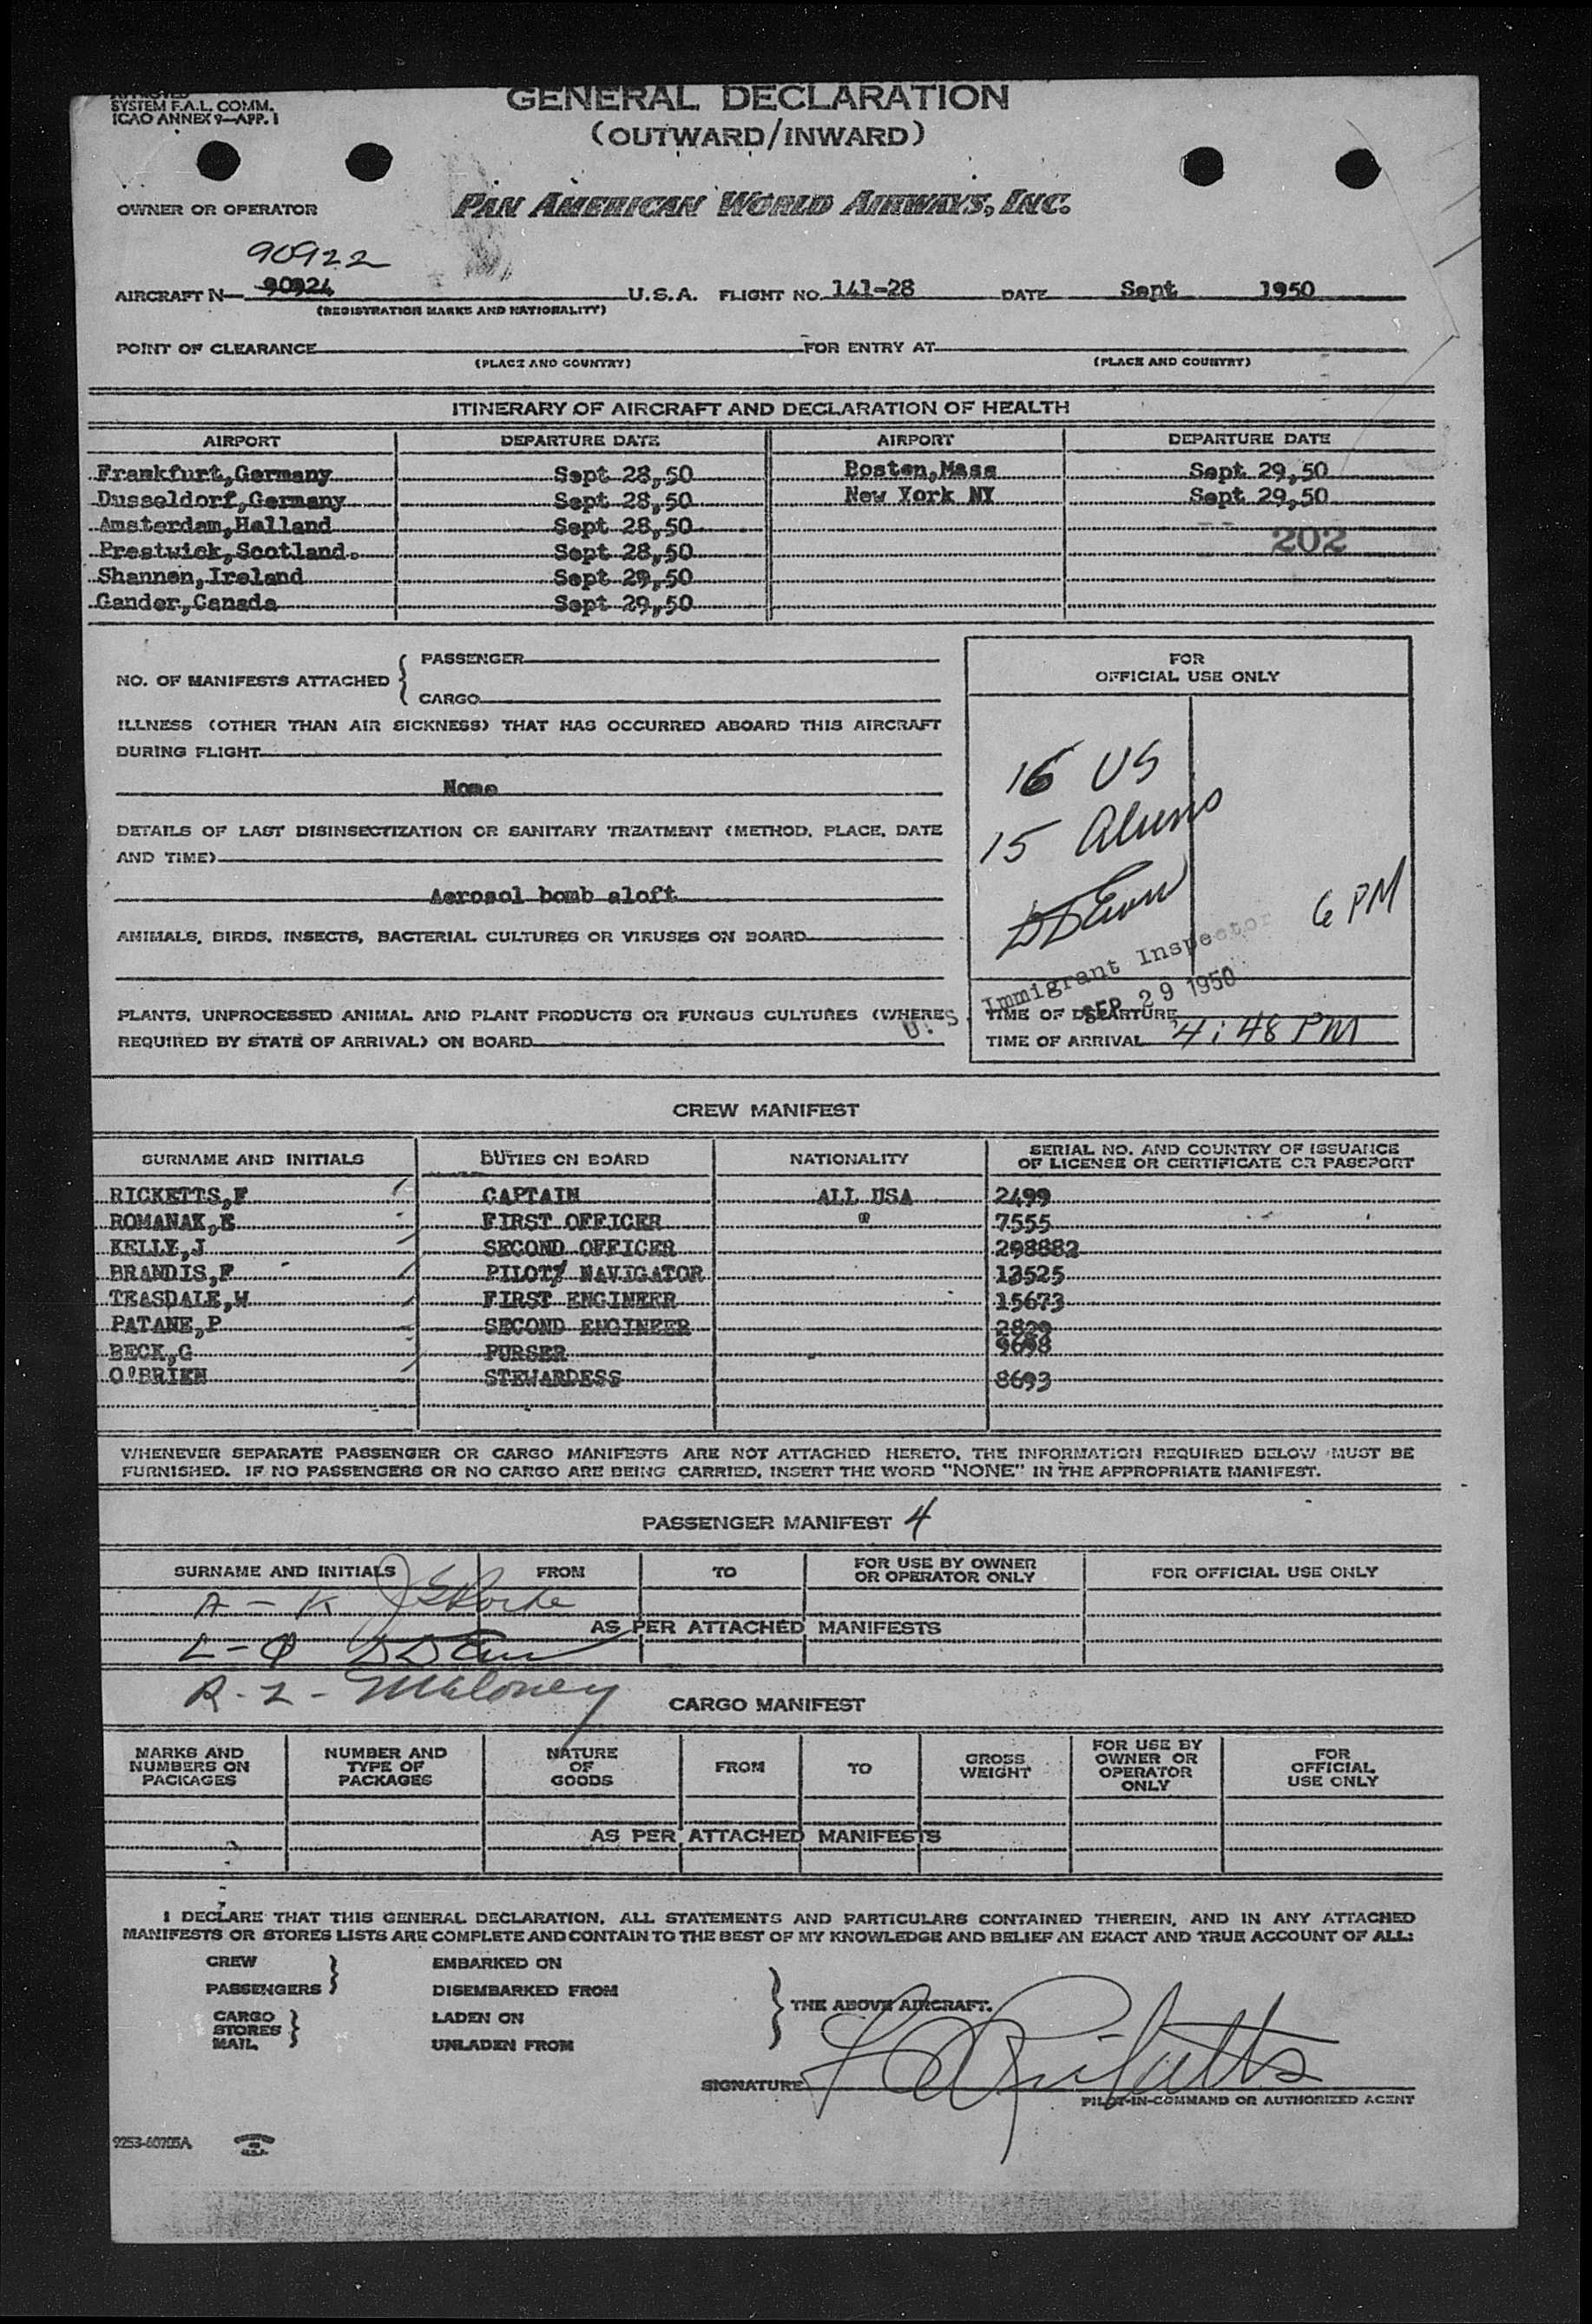 SYSTEM F.A.L. COMM.
ICAO ANNEX 9—APP. 1
GENERAL DECLARATION
(OUTWARD/INWARD)
OWNER OR OPERATOR PAN AMERICAN WORLD AIRWAYS, INC.
90922
AIRCRAFT N— 90924 U.S.A. FLIGHT NO. 141-28 DATE Sept 1950
(REGISTRATION MARKS AND NATIONALITY)
POINT OF CLEARANCE FOR ENTRY AT
(PLACE AND COUNTRY) (PLACE AND COUNTRY)
ITINERARY OF AIRCRAFT AND DECLARATION OF HEALTH
AIRPORT DEPARTURE DATE AIRPORT DEPARTURE DATE
Frankfurt,Germany Sept 28,50 Boston,Mass Sept 29,50
Dusseldorf,Germany Sept 28,50 New York NY Sept 29,50
Amsterdam,Holland Sept 28,50
Prestwick,Scotland. Sept 28,50 202
Shannon,Ireland Sept 29,50
Gander,Canada Sept 29,50
NO. OF MANIFESTS ATTACHED { PASSENGER
CARGO
FOR
OFFICIAL USE ONLY
ILLNESS (OTHER THAN AIR SICKNESS) THAT HAS OCCURRED ABOARD THIS AIRCRAFT
DURING FLIGHT
None
16 US
DETAILS OF LAST DISINSECTIZATION OR SANITARY TREATMENT (METHOD, PLACE, DATE
AND TIME)
15 Aliens
Aerosol bomb aloft
6 PM
ANIMALS, BIRDS, INSECTS, BACTERIAL CULTURES OR VIRUSES ON BOARD
U.S. Immigrant Inspector
SEP 29 1950
PLANTS, UNPROCESSED ANIMAL AND PLANT PRODUCTS OR FUNGUS CULTURES (WHERE
REQUIRED BY STATE OF ARRIVAL) ON BOARD
TIME OF DEPARTURE
TIME OF ARRIVAL 4:48 PM
CREW MANIFEST
SURNAME AND INITIALS DUTIES ON BOARD NATIONALITY SERIAL NO. AND COUNTRY OF ISSUANCE
OF LICENSE OR CERTIFICATE OR PASSPORT
RICKETTS,F CAPTAIN ALL USA 2499
ROMANAK,E FIRST OFFICER " 7555
KELLY,J SECOND OFFICER 298882
BRANDIS,F PILOT/ NAVIGATOR 13525
TEASDALE,W FIRST ENGINEER 15673
PATANE,P SECOND ENGINEER 2829
BECK,G PURSER 9698
O'BRIEN STEWARDESS 8693
WHENEVER SEPARATE PASSENGER OR CARGO MANIFESTS ARE NOT ATTACHED HERETO, THE INFORMATION REQUIRED BELOW MUST BE
FURNISHED. IF NO PASSENGERS OR NO CARGO ARE BEING CARRIED, INSERT THE WORD "NONE" IN THE APPROPRIATE MANIFEST.
PASSENGER MANIFEST 4
SURNAME AND INITIALS FROM TO FOR USE BY OWNER
OR OPERATOR ONLY FOR OFFICIAL USE ONLY
A - K
AS PER ATTACHED MANIFESTS
L - Q
R - Z - Maloney
CARGO MANIFEST
MARKS AND
NUMBERS ON
PACKAGES NUMBER AND
TYPE OF
PACKAGES NATURE
OF
GOODS FROM TO GROSS
WEIGHT FOR USE BY
OWNER OR
OPERATOR
ONLY FOR
OFFICIAL
USE ONLY
AS PER ATTACHED MANIFESTS
I DECLARE THAT THIS GENERAL DECLARATION, ALL STATEMENTS AND PARTICULARS CONTAINED THEREIN, AND IN ANY ATTACHED
MANIFESTS OR STORES LISTS ARE COMPLETE AND CONTAIN TO THE BEST OF MY KNOWLEDGE AND BELIEF AN EXACT AND TRUE ACCOUNT OF ALL:
CREW EMBARKED ON
PASSENGERS } DISEMBARKED FROM
THE ABOVE AIRCRAFT.
CARGO LADEN ON
STORES }
MAIL UNLADEN FROM
SIGNATURE F Ricketts
PILOT-IN-COMMAND OR AUTHORIZED AGENT
9253-60705A PRINTED
IN
U.S.A.